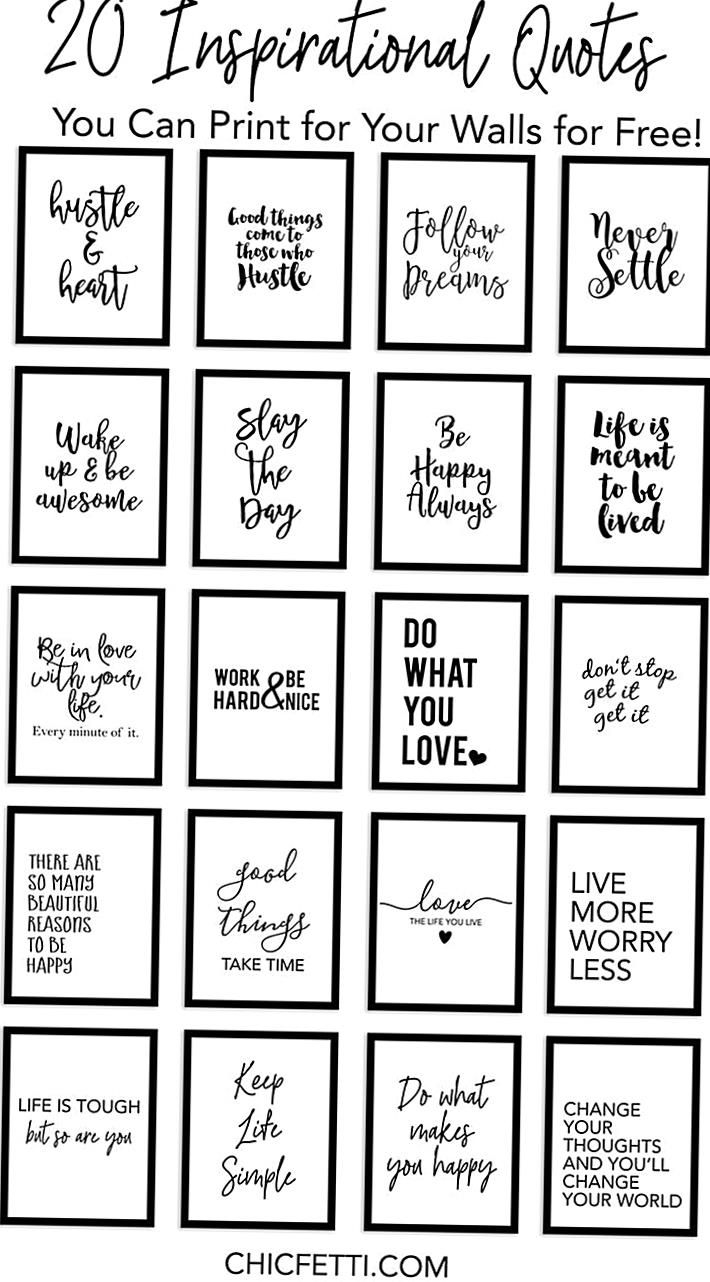 20 Inspirational Quotes
You Can Print for Your Walls for Free!
hustle
&
heart
Good things
come to
those who
Hustle
Follow
your
Dreams
Never
Settle
Wake
up & be
awesome
Slay
the
Day
Be
Happy
Always
Life is
meant
to be
lived
Be in love
with your
life.
Every minute of it.
WORK & BE
HARD NICE
DO
WHAT
YOU
LOVE
don't stop
get it
get it
THERE ARE
SO MANY
BEAUTIFUL
REASONS
TO BE
HAPPY
good
things
TAKE TIME
love
THE LIFE YOU LIVE
LIVE
MORE
WORRY
LESS
LIFE IS TOUGH
but so are you
Keep
Life
Simple
Do what
makes
you happy
CHANGE
YOUR
THOUGHTS
AND YOU'LL
CHANGE
YOUR WORLD
CHICFETTI.COM